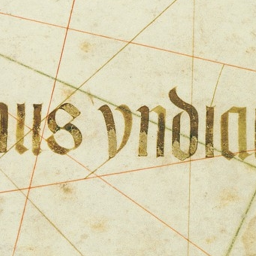 nus yndia